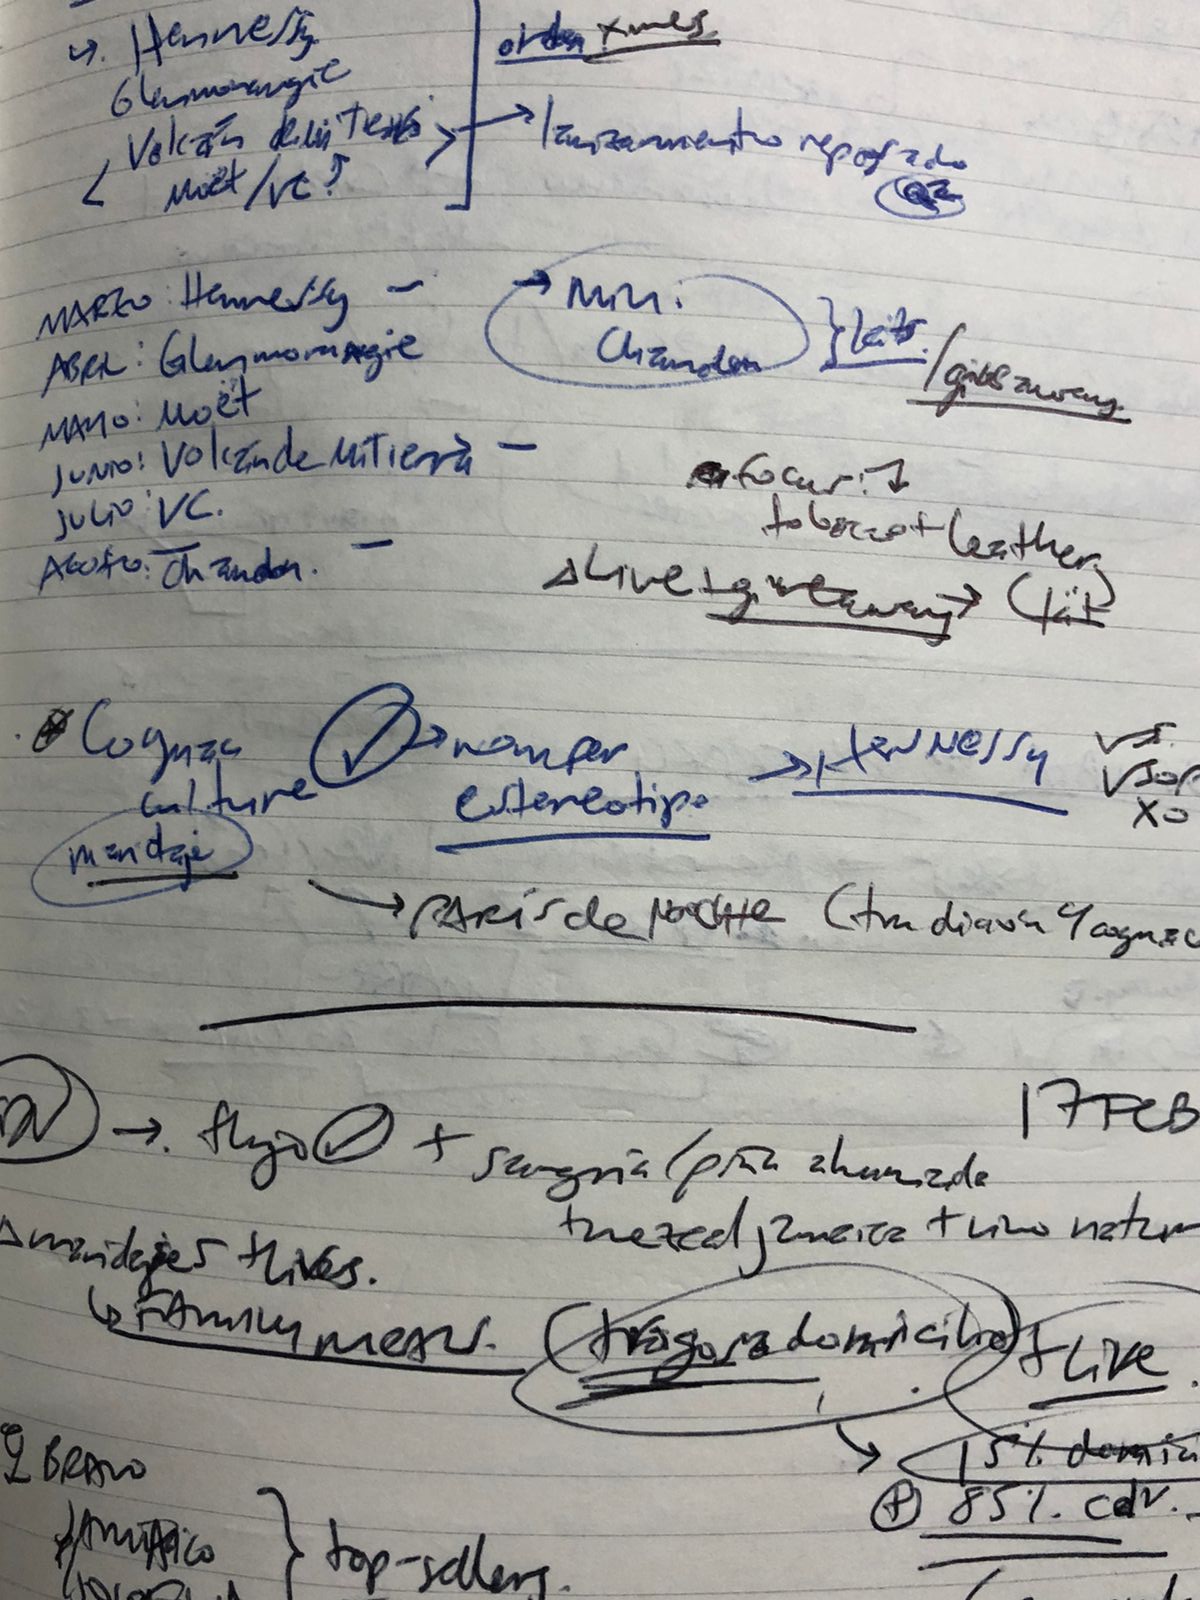 ↳. Hennessy
Glenmorangie
Volcán de mi Tierra
Moët/VC?
orden xmes.
→ lanzamiento reposado
Q2
MARZO: Hennessy —
ABRIL: Glenmorangie
MAYO: Moët
JUNIO: Volcán de mi Tierra —
JULIO: VC.
AGOSTO: Chandon. —
→ Mini.
Chandon } kits.
/giveaway
focus: ↴
tobacco + leather
Live + giveaway → (kit)
Cognac
culture
maridaje
→ romper
estereotipo
→ HENNESSY
VS.
VSOP
XO
→ PARÍS de NOCHE (tradición y cognac
17 FEB
→. flujo + sangría/piña ahumada
+ mezcal jamaica + vino natur
maridajes + lives.
↳ FAMILY MEALS. (tragos a domicilio) + LIVE.
15% domici
⊕ 85% cdv.
BRAVO
} top-sellers.